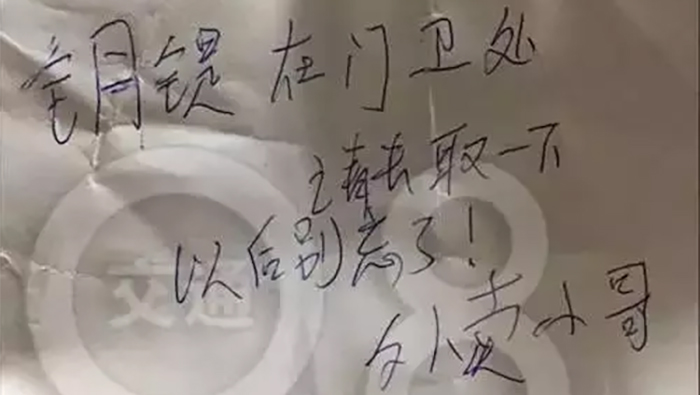 钥匙在门卫处
请去取一下
以后别忘了!
外卖小哥
交通
8